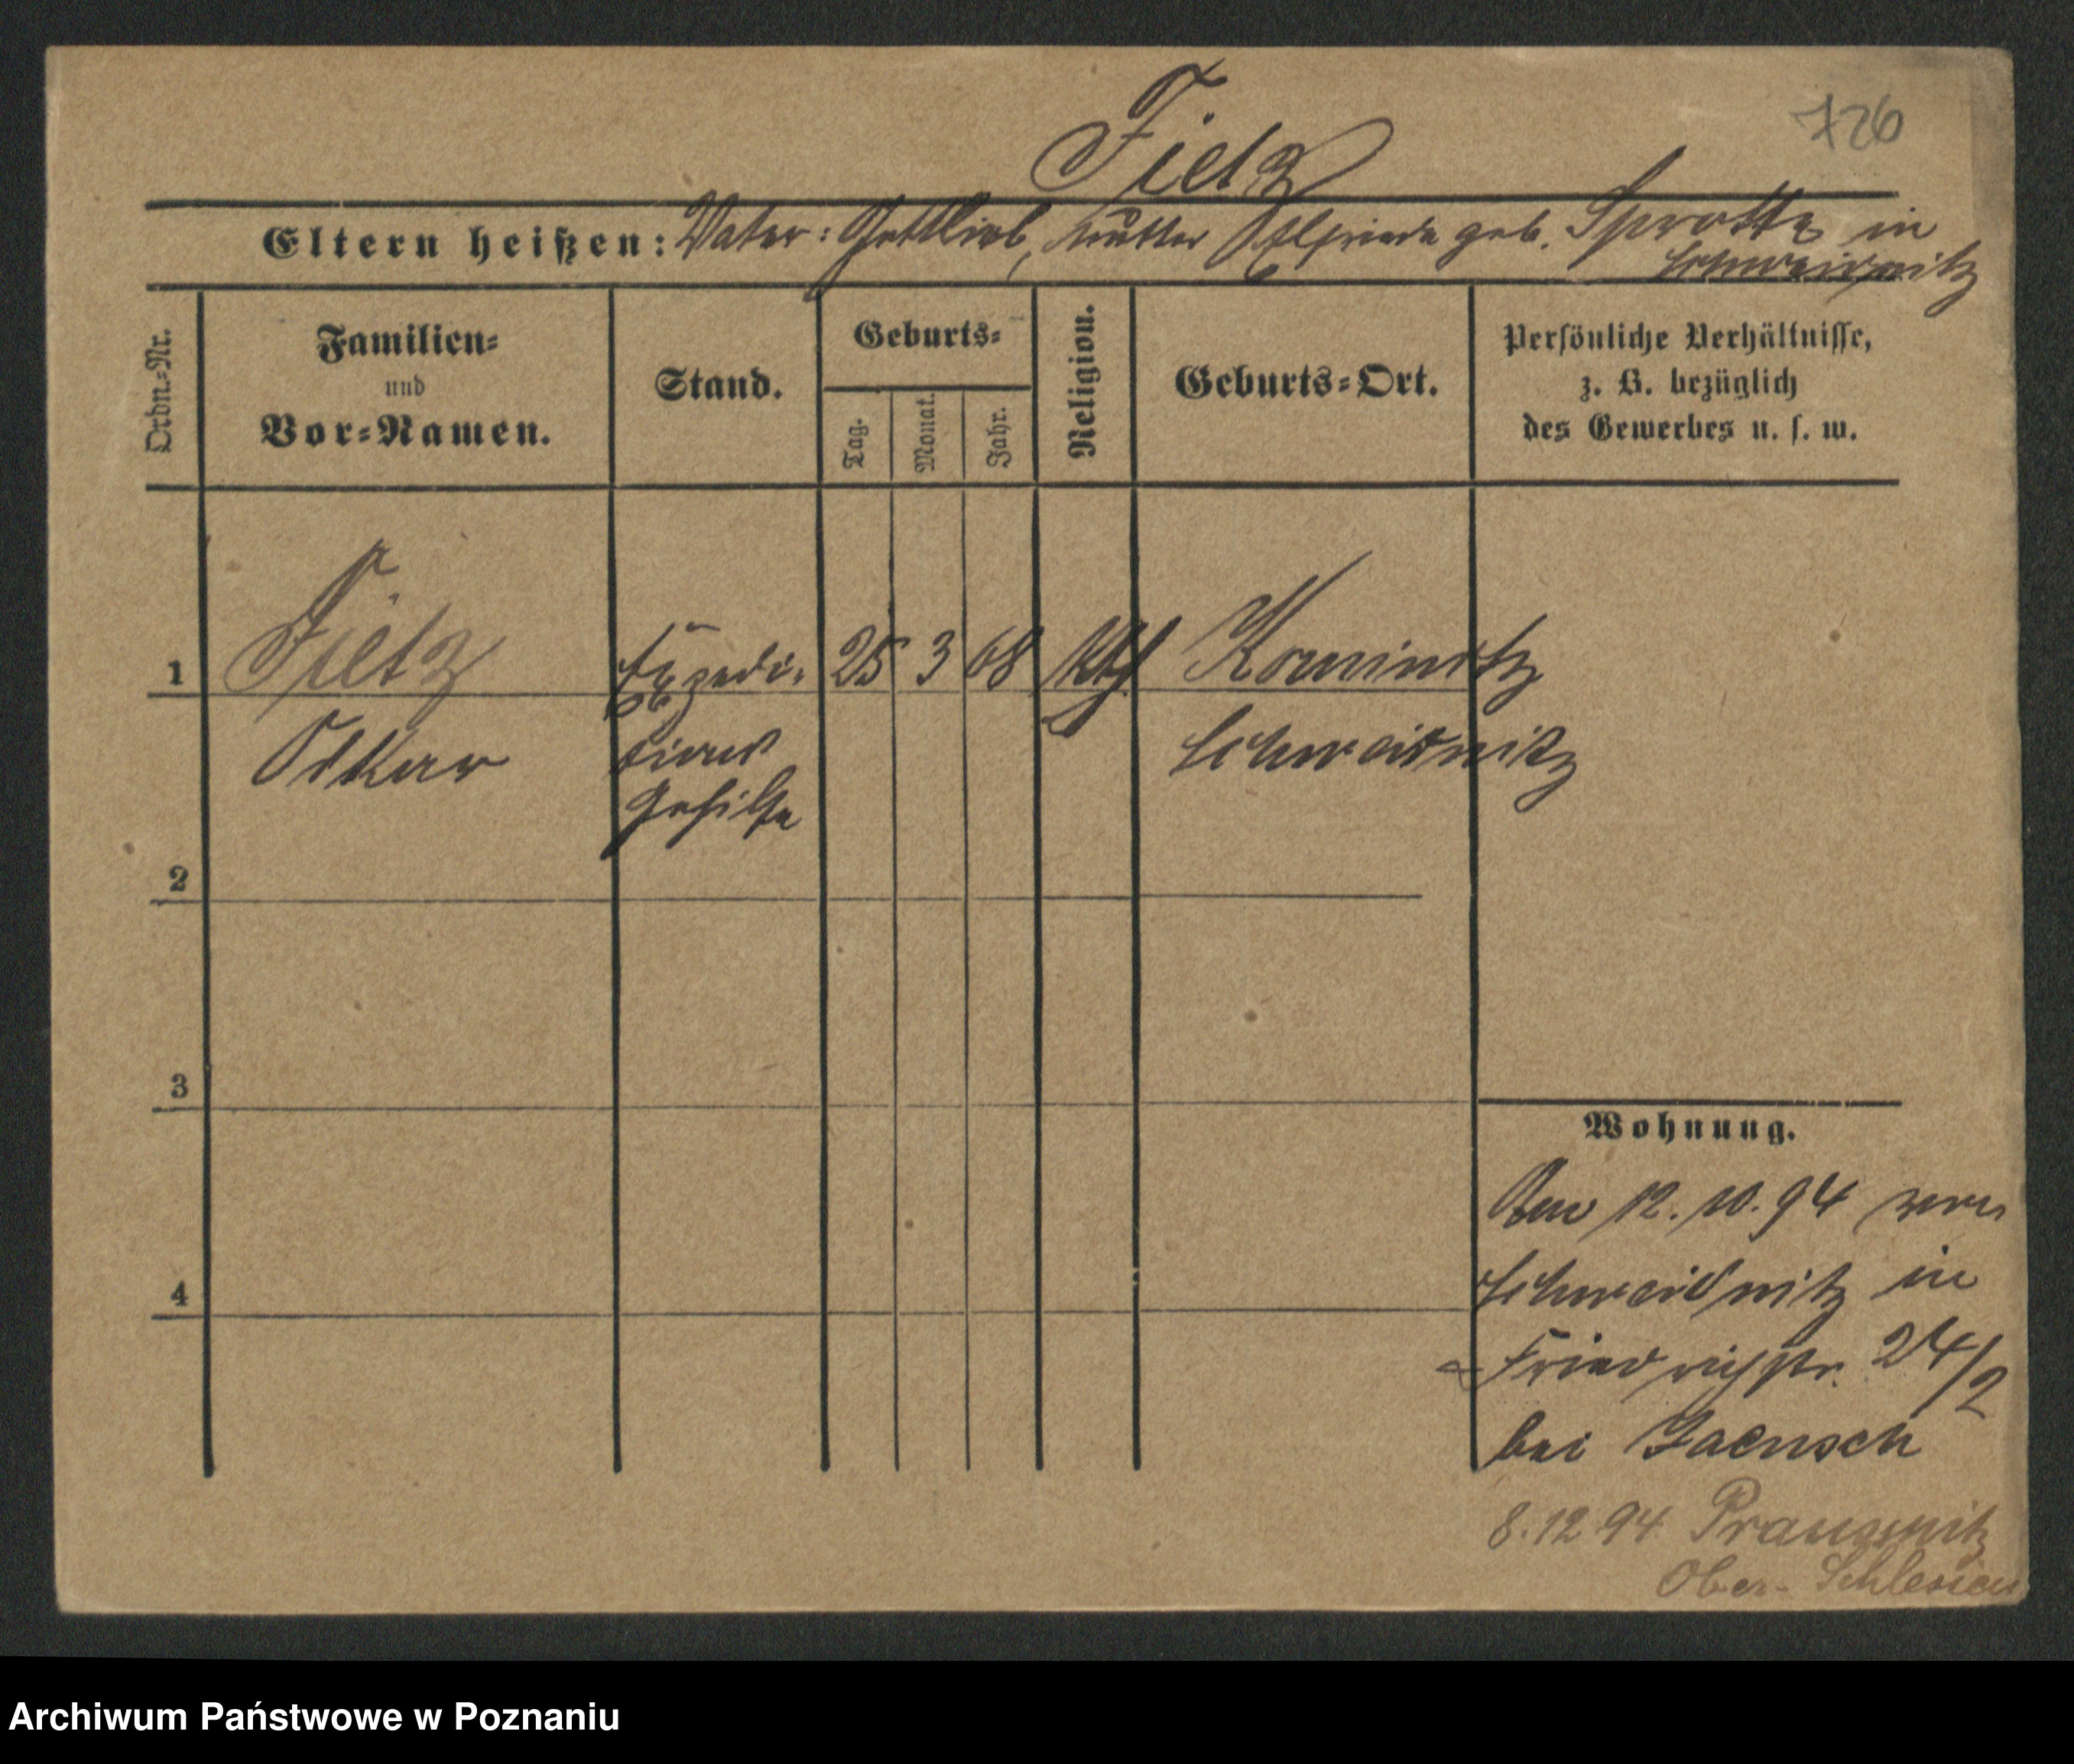 726
Fietz
Eltern heißen: Vater: Gottlieb, Mutter Elfriede geb. Sprotte in
Schweidnitz
Ordn.-Nr.
Familien-
und
Vor-Namen.
Stand.
Geburts-
Tag.
Monat.
Jahr.
Religion.
Geburts-Ort.
Persönliche Verhältnisse,
z. B. bezüglich
des Gewerbes u. s. w.
1
Fietz
Expedi-
25
3
68
Kth
Oskar
Schweidnitz
Gehilfe
2
3
4
Wohnung.
Am 12.10.94 von
Schweidnitz in
Friedrichstr. 24/2
bei Jaensch
8.12 94. Prausnitz
Ober-Schlesien
Archiwum Państwowe w Poznaniu